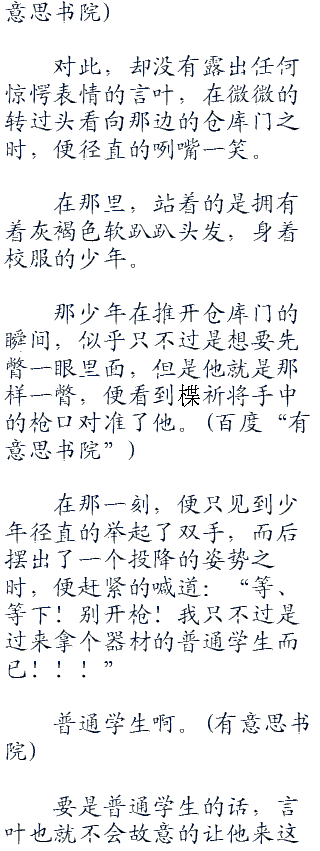 意思书院)
对此，却没有露出任何
惊愕表情的言叶，在微微的
转过头看向那边的仓库门之
时，便径直的咧嘴一笑。
在那里，站着的是拥有
着灰褐色软趴趴头发，身着
校服的少年。
那少年在推开仓库门的
瞬间，似乎只不过是想要先
瞥一眼里面，但是他就是那
样一瞥，便看到楪祈将手中
的枪口对准了他。(百度“有
意思书院”)
在那一刻，便只见到少
年径直的举起了双手，而后
摆出了一个投降的姿势之
时，便赶紧的喊道：“等、
等下！别开枪！我只不过是
过来拿个器材的普通学生而
已！！！”
普通学生啊。(有意思书
院)
要是普通学生的话，言
叶也就不会故意的让他来这